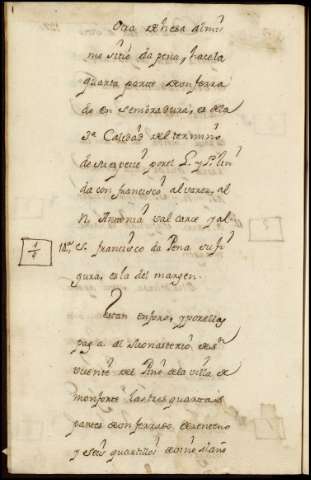 Otra dehesa al mis
mo sitio da pena, hace la
quarta parte de un ferra
do en sembradura, es de la
3ª Calidad del termino
de su especie por el L. y P. lin
da con francisco alvarez, al
N. Antonia valcarce y al
S. francisco da Pena su fi
gura, es la del margen.
1/4
Estan en foro, y por ellas
paga al Monasterio de Sn
Vicente del Pino de la villa de
monforte las tres quartas
partes de un ferrado de centeno
y seis quartillos de vino al año